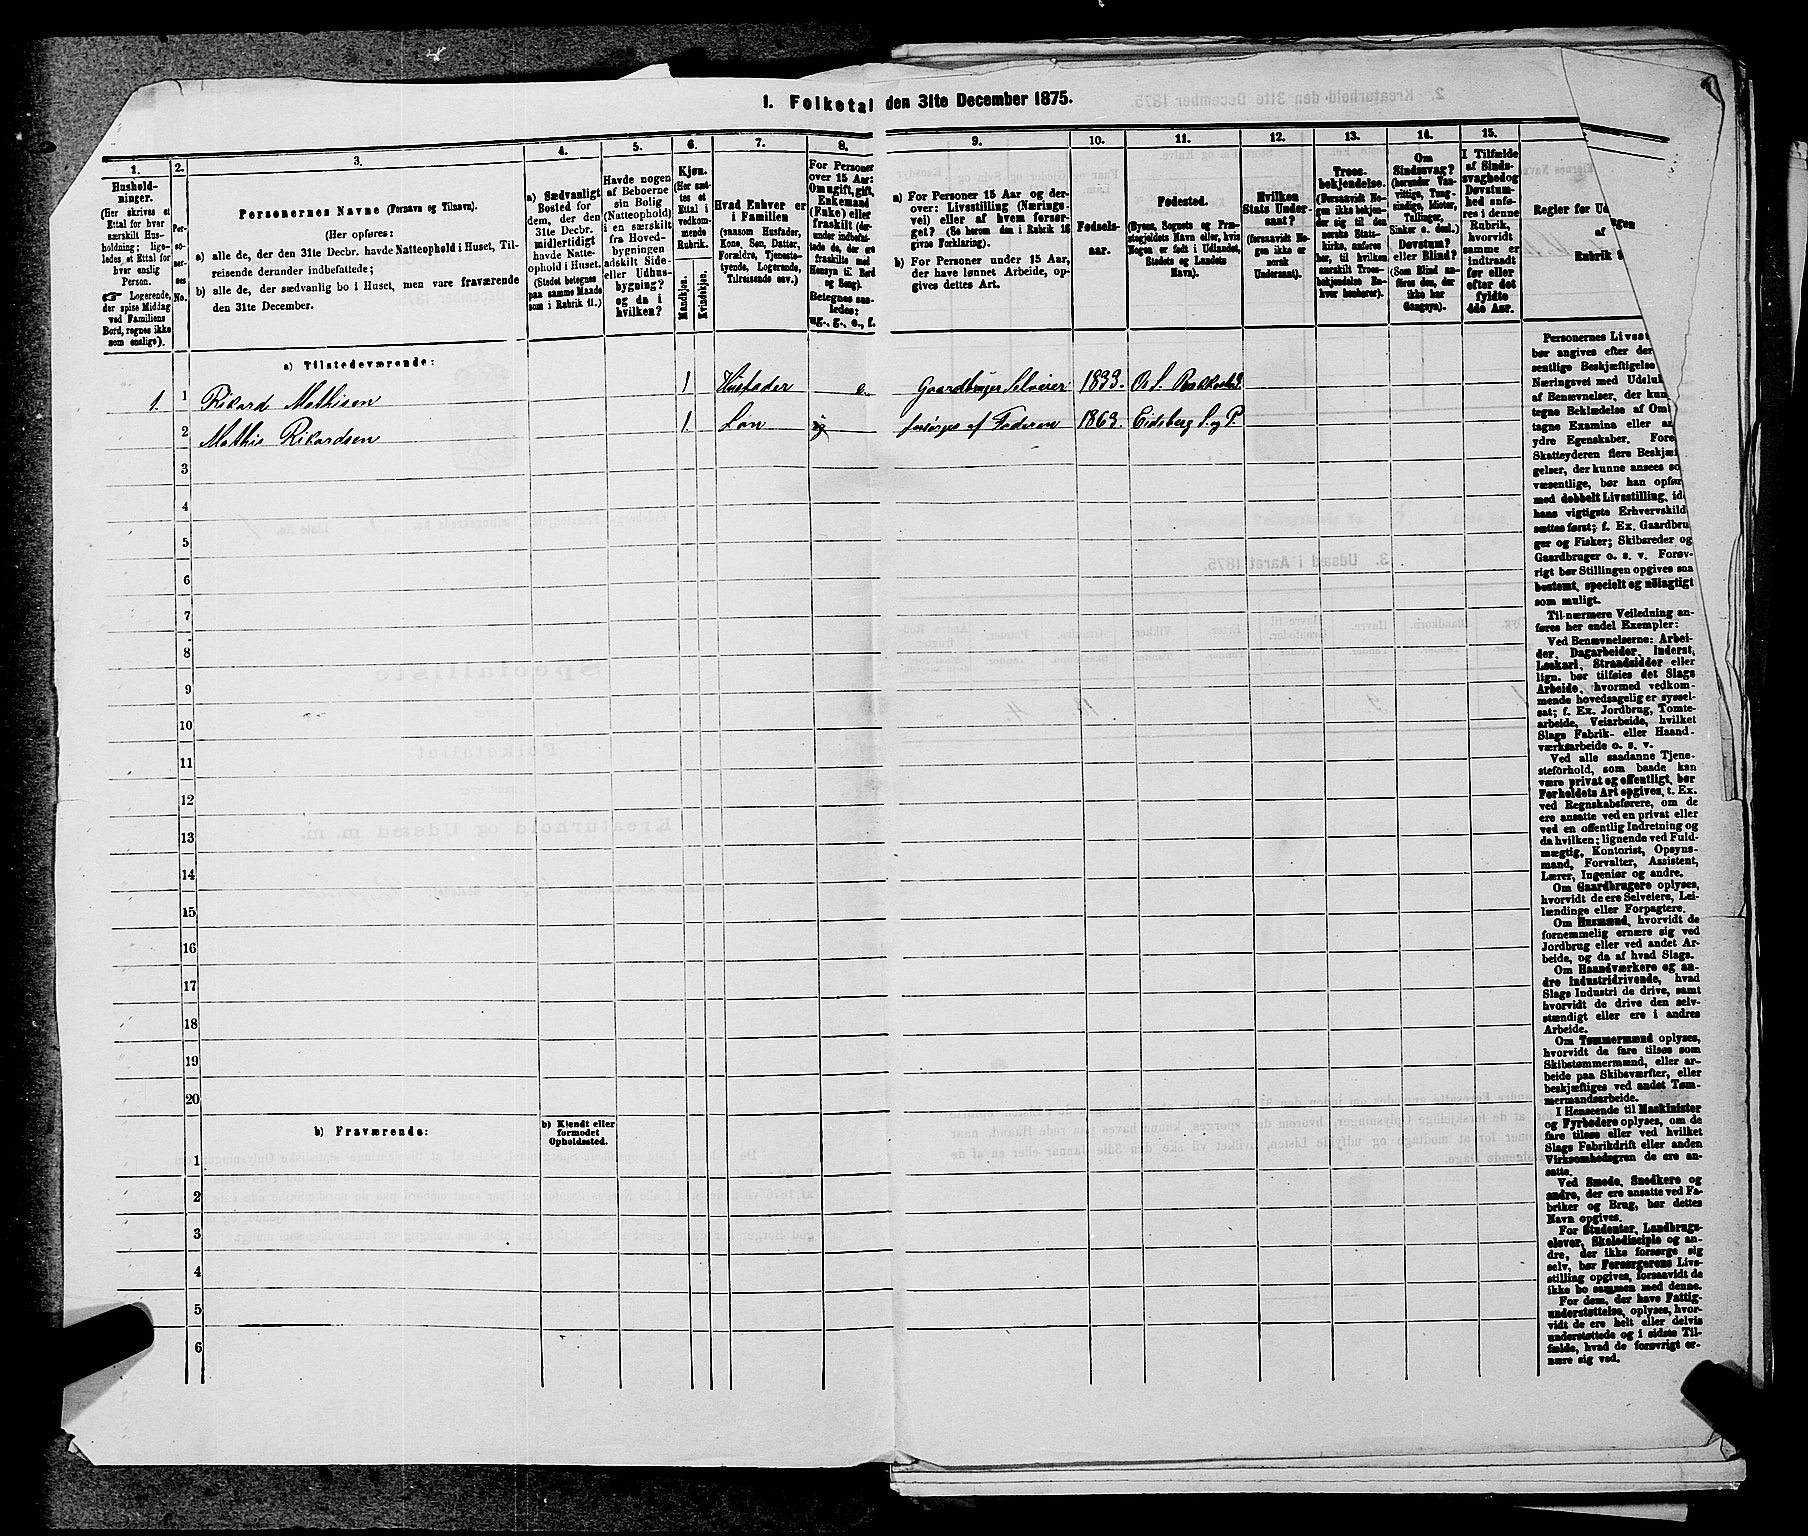 1. Folketal den 31te December 1875.
1.
2.
3.
4.
5.
6.
7.
8.
9.
10.
11.
12.
13.
14.
15.
Hushold-
ninger.
(Her skrives et
Ettal for hver
særskilt Hus-
holdning; lige-
ledes et Ettal for
hver enslig
Person.
Logerende,
der spise Middag
ved Familiens
Bord, regnes ikke
som enslige).
Per-
so-
ner-
nes
No.
Personernes Navne (Fornavn og Tilnavn).
(Her opføres:
a) alle de, der den 31te Decbr. havde Natteophold i Huset, Til-
reisende derunder indbefattede;
b) alle de, der sædvanlig bo i Huset, men vare fraværende
den 31te December.
a) Sædvanligt
Bosted for
dem, der den
31te Decbr.
midlertidigt
havde Natte-
ophold i Huset.
(Stedet betegnes
paa samme Maade
som i Rubrik 11.)
Havde nogen
af Beboerne
sin Bolig
(Natteophold)
i en særskilt
fra Hoved-
bygningen
adskilt Side-
eller Udhus-
bygning?
og da i
hvilken?
Kjøn.
(Her sæt-
tes et
Ettal i
vedkom-
mende
Rubrik.
Mandkjøn.
Kvindekjøn.
Hvad Enhver er
i Familien
(saasom Husfader,
Kone, Søn, Datter,
Forældre, Tjeneste-
tyende, Logerende,
Tilreisende osv.)
For Personer
over 15 Aar:
Om ugift, gift,
Enkemand
(Enke) eller
fraskilt (der-
under indbefat-
tede de, der ere
fraskilte med
Hensyn til Bord
og Seng).
Betegnes saa-
ledes:
ug., g., e., f.
a) For Personer 15 Aar og der-
over: Livsstilling (Nærings-
vei) eller af hvem forsør-
get? (Se herom den i Rubrik 16
givne Forklaring).
b) For Personer under 15 Aar,
der have lønnet Arbeide, op-
gives dettes Art.
Fødsels-
aar.
Fødested.
(Byens, Sognets og Præ-
stegjeldets Navn eller, hvis
Nogen er født i Udlandet,
Stedets og Landets
Navn).
Hvilken
Stats Under-
saat?
(forsaavidt No-
gen ikke er
norsk
Undersaat).
Troes-
bekjendelse.
(Forsaavidt No-
gen ikke bekjen-
der sig til den
norske Stats-
kirke, anføres
her, til hvilken
særskilt Troes-
bekjendelse En-
hver henhører).
Om
Sindssvag?
(herunder Van-
vittige, Tung-
sindige, Idioter,
Tullinger,
Sinker o. desl.)
Døvstum?
eller Blind?
(Som Blind an-
føres den, der
ikke har
Gangsyn).
I Tilfælde
af Sinds-
svaghed og
Døvstum-
hed anfø-
res i denne
Rubrik,
hvorvidt
samme er
indtraadt
før eller
efter det
fyldte
4de Aar.
a) Tilstedeværende:
1. 1 Rikard Mathisen 1 Husfader e. Gaardbruger Selveier 1833.
2 Mathis Rikardsen 1 Søn forsørges af Faderen 1863. Eidsberg S. og P.
3
4
5
6
7
8
9
10
11
12
13
14
15
16
17
18
19
20
b) Fraværende:
b) Kjendt eller
formodet
Opholdssted.
1
2
3
4
5
6
Personernes Livsst
bør angives efter der
sentlige Beskjæftigelse
Næringsvei med Udeluk
af Benævnelser, der kun
tegne Beklædelse af Om
tagne Examina eller an
ydre Egenskaber. Fore
Skatteyderen flere Beskjæf
gelser, der kunne ansees so
væsentlige, bør han opfør
med dobbelt Livsstilling, id
hans vigtigste Erhvervskild
sættes først; f. Ex. Gaardbru
ger og Fisker; Skibsreder og
Gaardbruger o. s. v. Forøv-
rigt bør Stillingen opgives saa
bestemt, specielt og nøiagtigt
som muligt.
Til nærmere Veiledning an-
føres her endel Exempler:
Ved Benævnelserne: Arbei-
der, Dagarbeider, Inderst,
Løskarl, Strandsidder eller
lign. bør tilføies det Slags
Arbeide, hvormed vedkom-
mende hovedsagelig er syssel-
sat; f. Ex. Jordbrug, Tomte-
arbeide, Veiarbeide, hvilket
Slags Fabrik- eller Haand-
værksarbeide o. s. v.
Ved alle saadanne Tjene-
steforhold, som baade kan
være privat og offentligt, bør
Forholdets Art opgives, t. Ex.
ved Regnskabsførere, om de
ere ansatte ved en privat eller
ved en offentlig Indretning og
da hvilken; lignende ved Fuld-
mægtig, Kontorist, Opsyns-
mand, Forvalter, Assistent,
Lærer, Ingeniør og andre.
Om Gaardbrugere oplyses,
hvorvidt de ere Selveiere, Lei-
lændinge eller Forpagtere.
Om Husmænd, hvorvidt de
fornemmelig ernære sig ved
Jordbrug eller ved andet Ar-
beide, og da af hvad Slags.
Om Haandværkere og an-
dre industridrivende, hvad
Slags Industri de drive, samt
hvorvidt de drive den selv-
stændigt eller ere i andres
Arbeide.
Om Tømmermænd oplyses,
hvorvidt de fare tilsøs som
Skibstømmermænd, eller ar-
beide paa Skibsværfter, eller
beskjæftiges ved andet Tøm-
mermandsarbeide.
I Henseende til Maskinister
og Fyrbødere oplyses, om de
fare tilsøs eller ved hvilket
Slags Fabrikdrift eller anden
Virksomhedsgren de ere an-
satte.
Ved Smede, Snedkere og
andre, der ere ansatte ved Fa-
briker og Brug, bør dettes
Navn opgives.
For Studenter, Landbrugs-
elever, Skoledisciple og an-
dre, der ikke forsørge sig
selv, bør Forsørgerens Livs-
stilling opgives, forsaavidt de
ikke bo sammen med denne.
For dem, der have Fattig-
understøttelse, oplyses, hvor-
vidt de ere helt eller delvis
understøttede og i sidste Til-
fælde, hvad de forøvrigt er-
nære sig ved.